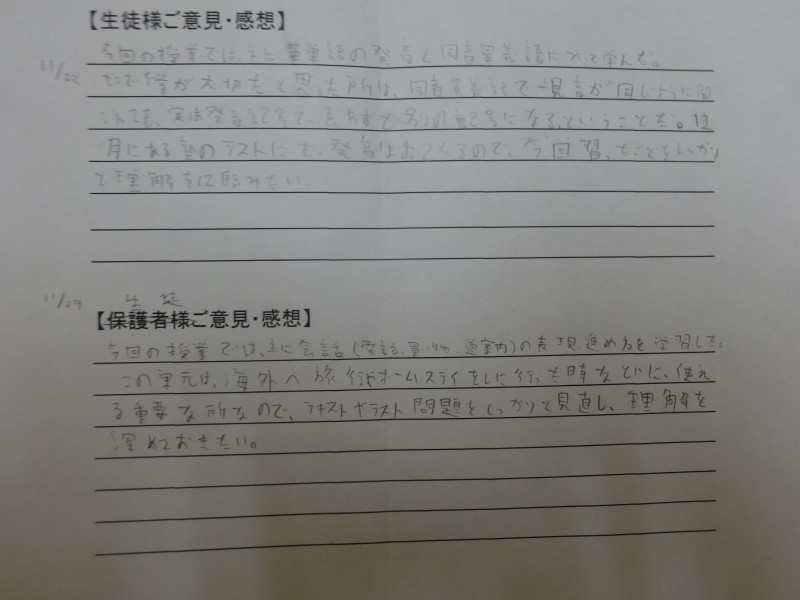 【生徒様ご意見・感想】
11/22
今回の授業では、主に英単語の発音と同音異義語について学んだ。
そこで僕が大切だと思った所は、同音異義語で一見音が同じように聞
こえても、実は発音記号で表わすと別の記号になる、ということだ。12
月にある塾のテストにも、発音は出てくるので、今回習ったことをしっかり
と理解をして臨みたい。
11/29 生徒
【保護者様ご意見・感想】
今回の授業では、主に会話(電話、買い物、道案内)の表現、進め方を学習した。
この単元は、海外へ旅行やホームステイをしに行った時などに、使え
る重要な所なので、テキストやテスト問題をしっかりと見直し、理解を
深めておきたい。